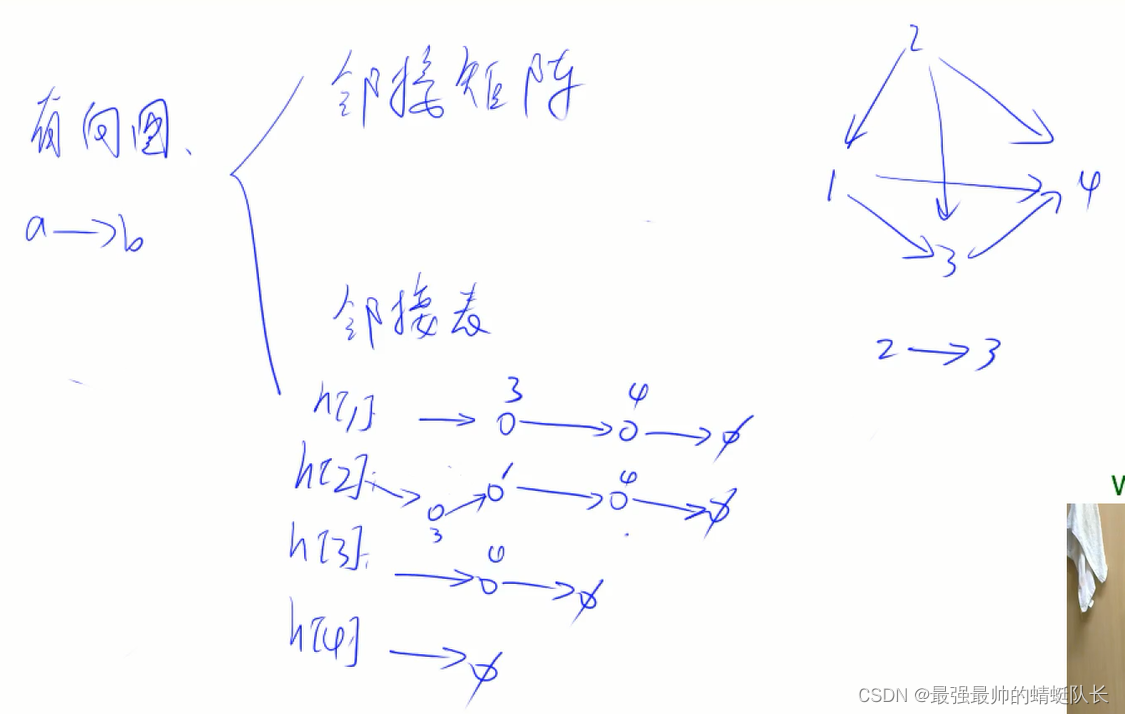 有向图、
a→b
邻接矩阵
邻接表
h[1] → 3 → 4 → ∅
h[2] → 3 → 1 → 4 → ∅
h[3] → 4 → ∅
h[4] → ∅
2
1
4
3
2→3
CSDN @最强最帅的蜻蜓队长